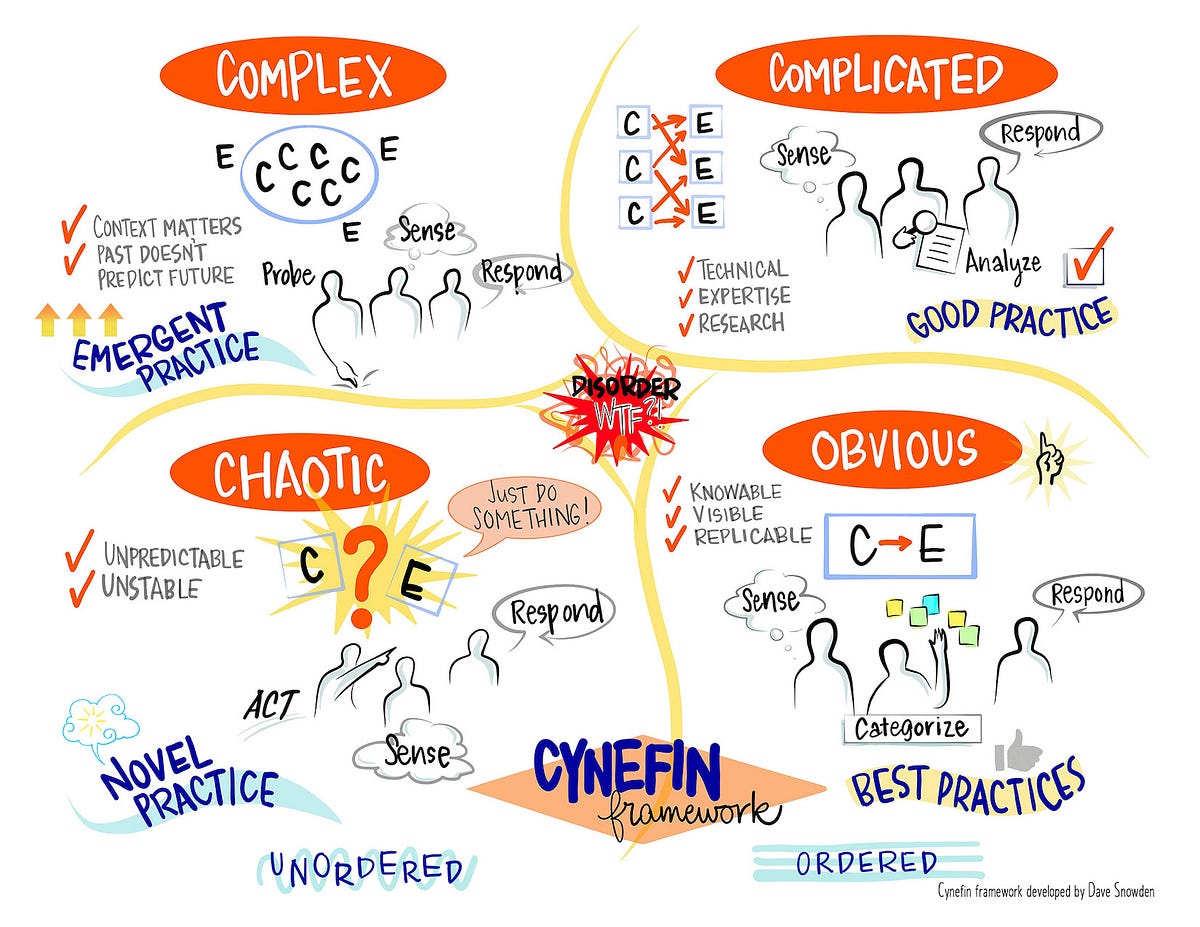 COMPLEX
E
C C C C C C C
E
E
CONTEXT MATTERS
PAST DOESN'T
PREDICT FUTURE
Probe
Sense
Respond
EMERGENT
PRACTICE
COMPLICATED
C E
C E
C E
Sense
Respond
Analyze
TECHNICAL
EXPERTISE
RESEARCH
GOOD PRACTICE
DISORDER
WTF?!
CHAOTIC
JUST DO
SOMETHING!
UNPREDICTABLE
UNSTABLE
C ? E
Respond
ACT
Sense
NOVEL
PRACTICE
UNORDERED
OBVIOUS
KNOWABLE
VISIBLE
REPLICABLE
C → E
Sense
Respond
Categorize
BEST PRACTICES
CYNEFIN
framework
ORDERED
Cynefin framework developed by Dave Snowden